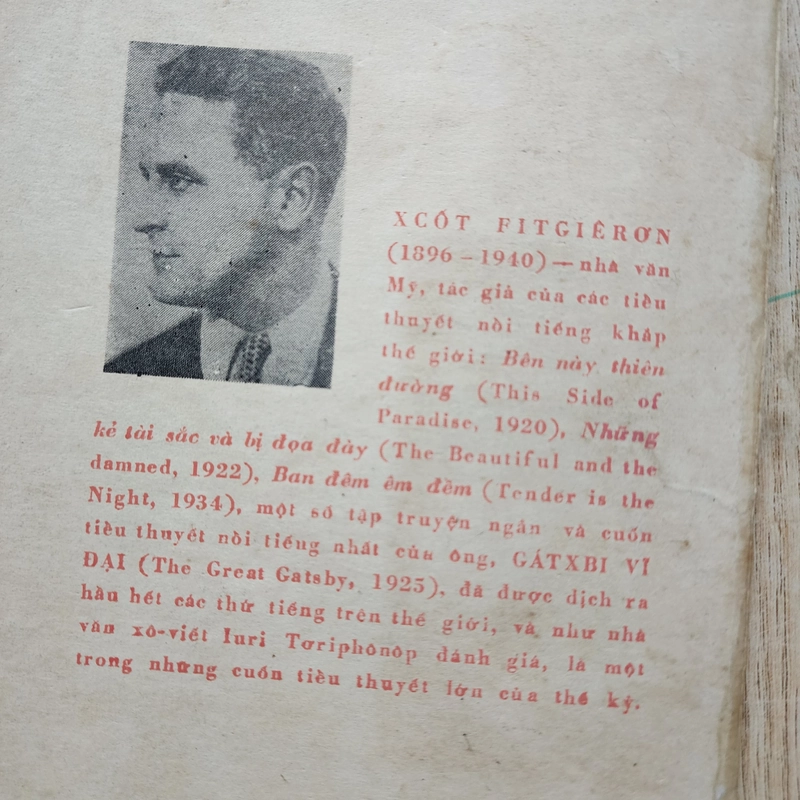 XCỐT FITGIÊRƠN
(1896 – 1940) — nhà văn
Mỹ, tác giả của các tiểu
thuyết nổi tiếng khắp
thế giới: Bên này thiên
đường (This Side of
Paradise, 1920), Những
kẻ tài sắc và bị đọa đày (The Beautiful and the
damned, 1922), Ban đêm êm đềm (Tender is the
Night, 1934), một số tập truyện ngắn và cuốn
tiểu thuyết nổi tiếng nhất của ông, GÁTXBI VĨ
ĐẠI (The Great Gatsby, 1925), đã được dịch ra
hầu hết các thứ tiếng trên thế giới, và như nhà
văn xô-viết Iuri Tơriphônôp đánh giá, là một
trong những cuốn tiểu thuyết lớn của thế kỷ.